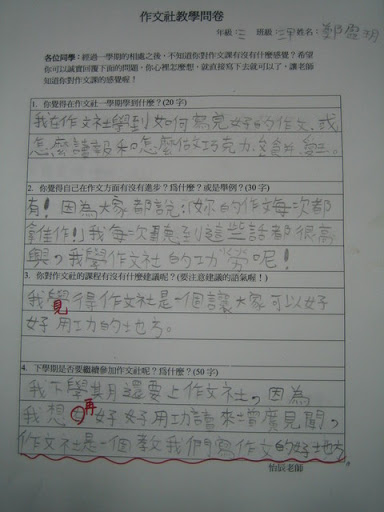 作文社教學問卷
年級:三 班級:三甲 姓名:鄭
各位同學:經過一學期的相處之後,不知道你對作文課有沒有什麼感覺?希望
你可以誠實回覆下面的問題,你心裡怎麼想,就直接寫下去就可以了,讓老師
知道你對作文課的感覺喔!
1. 你覺得在作文社一學期學到什麼?(20 字)
我在作文社學到如何寫完好的作文,或
怎麼讀報和怎麼做巧克力
2. 你覺得自己在作文方面有沒有進步?為什麼?或是舉例?(30 字)
有!因為大家都說:「妳的作文每次都
拿佳作!」我每次聽到這些話都很高
興,我學作文社的功勞呢!
3. 你對作文社的課程有沒有什麼建議呢?(要注意建議的語氣喔!)
我覺得作文社是一個讓大家可以好
見
好用功的地方。
4. 下學期是否要繼續參加作文社呢?為什麼?(50 字)
我下學其月還要上作文社,因為
再
我想 好好用功讀來增廣見聞,
作文社是一個教我們寫作文的好地方。
怡辰老師